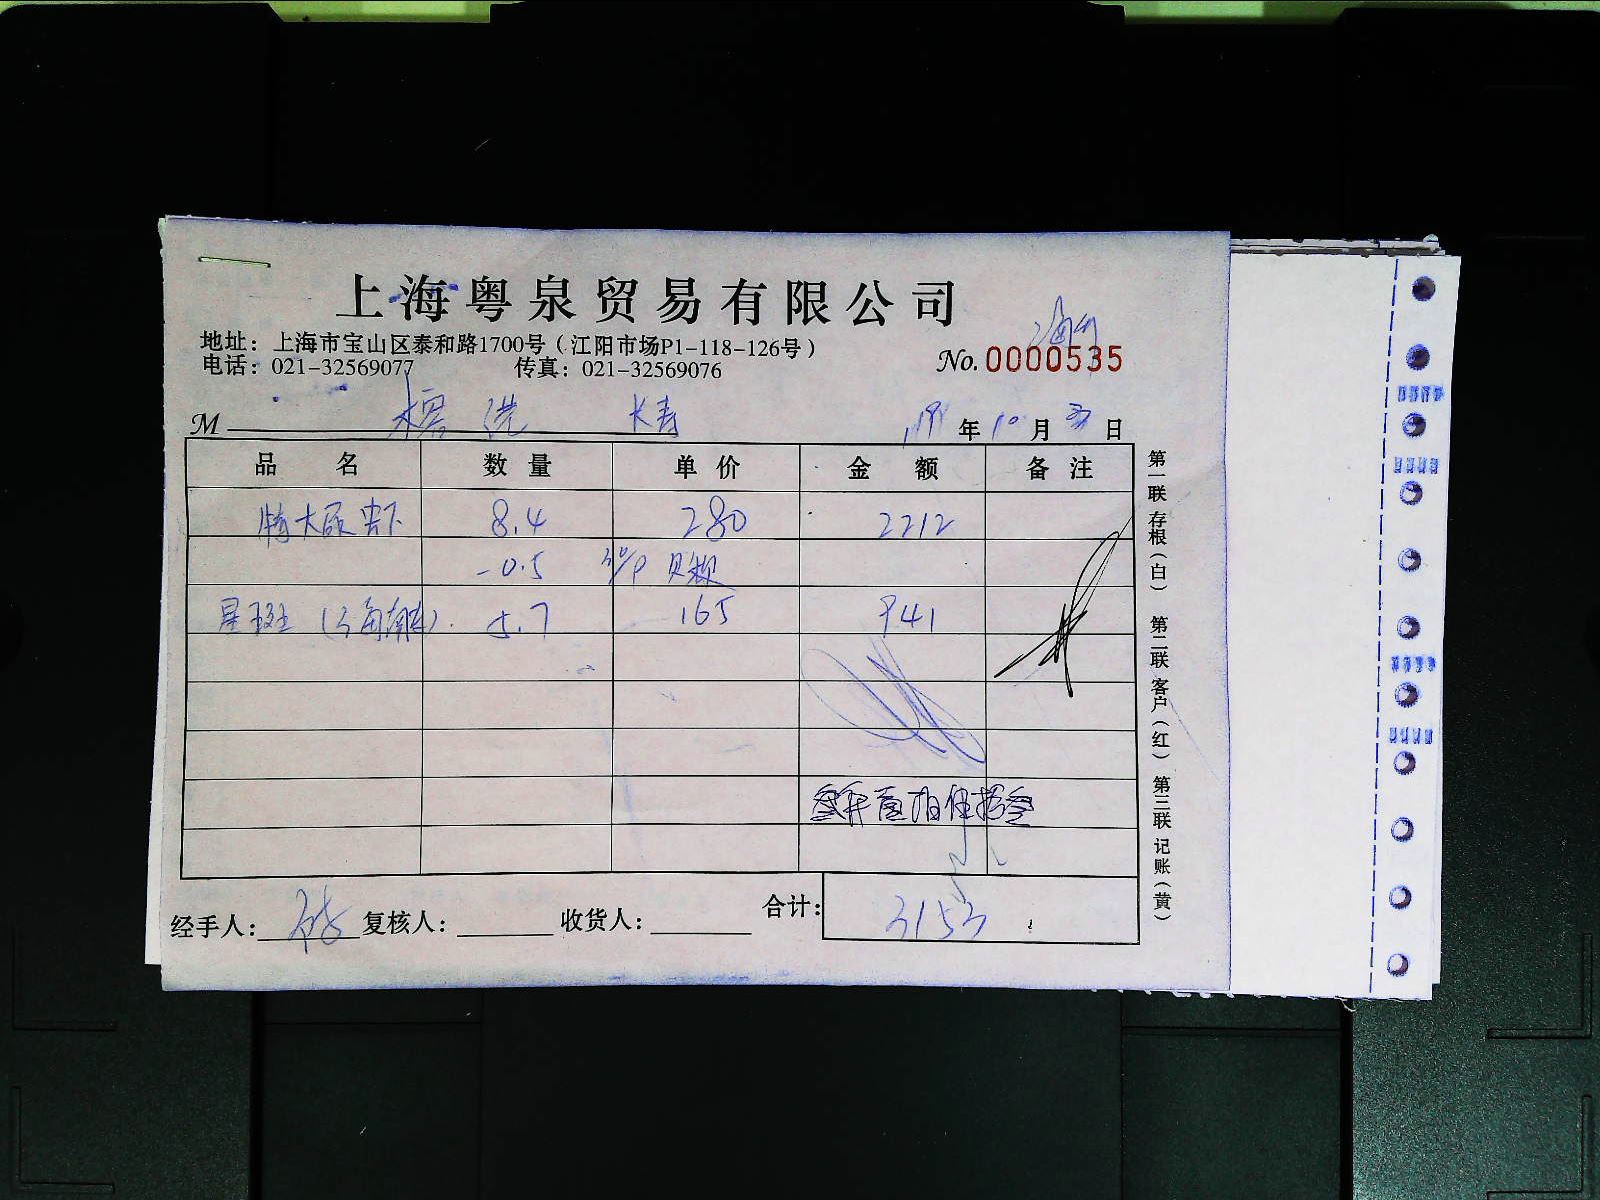 上海粤泉贸易有限公司
地址：上海市宝山区泰和路1700号（江阳市场P1-118-126号）
电话：021-32569077 传真：021-32569076
No. 0000535
M 长寿 年 10 月 日
品名 数量 单价 金额 备注
特大尿虾 8.4 280 2212
-0.5
星斑 5.7 165 941
叁仟壹佰伍拾叁
经手人： 复核人： 收货人： 合计： 3153
第一联 存根（白） 第二联 客户（红） 第三联 记账（黄）